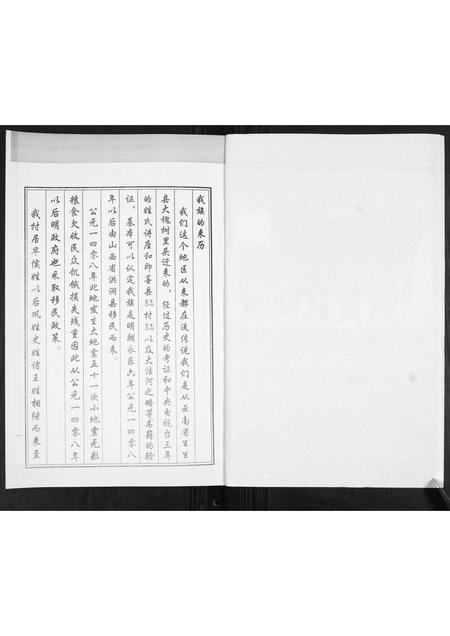 我族的来历
我们这个地区从来都在流传说我们是从云南省生生
县大槐树里头迁来的，经过历史的考证和中央电视台三年
的姓氏讲座和即墨县誌村誌以及大沽河之畔等书籍的验
证，基本可以认定我族是明朝永乐六年公元一四零八
年以后由山西省洪洞县移民而来。
公元一四零八年此地发生大地震五十一次小地震无数
粮食欠收民众饥饿损失残重因此从公元一四零八年
以后明政府也采取移民政策。
我村居早侯姓以后巩姓史姓诸王姓相继而来至